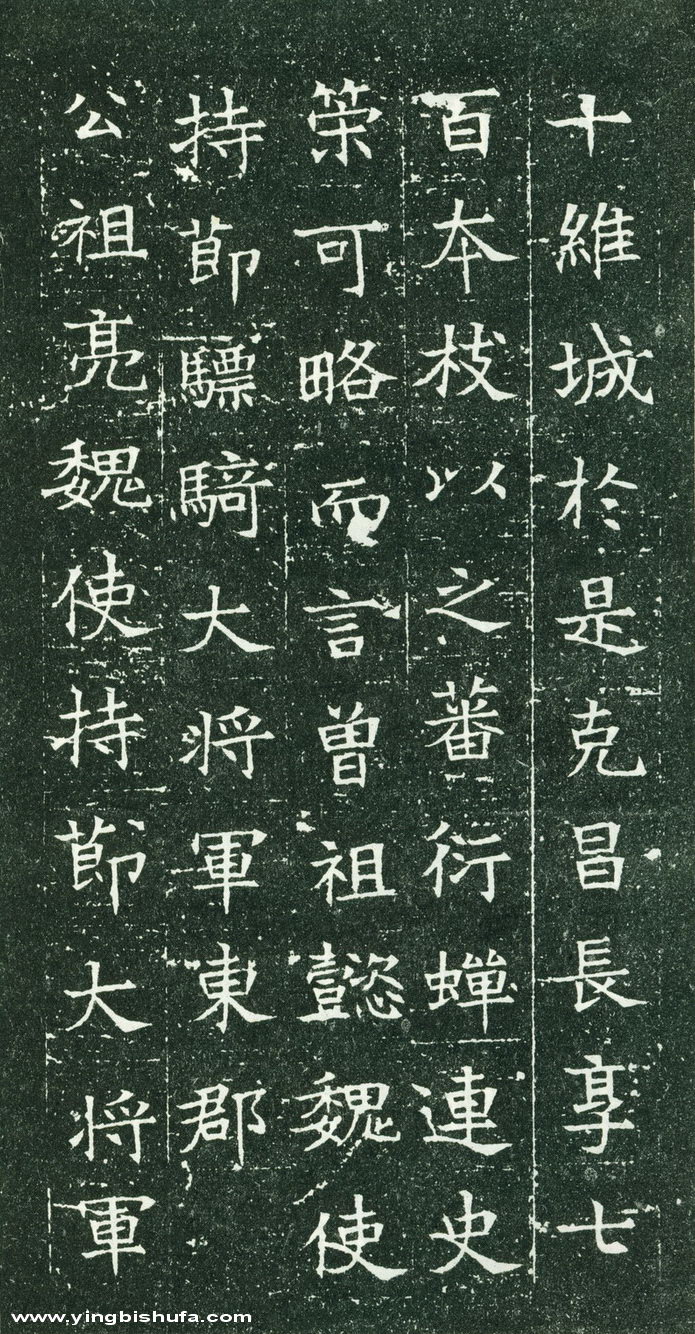 十維城於是克昌長享七
百本枝以之蕃衍蟬連史
策可略而言曾祖懿魏使
持節驃騎大將軍東郡
公祖亮魏使持節大將軍
www.yingbishufa.com